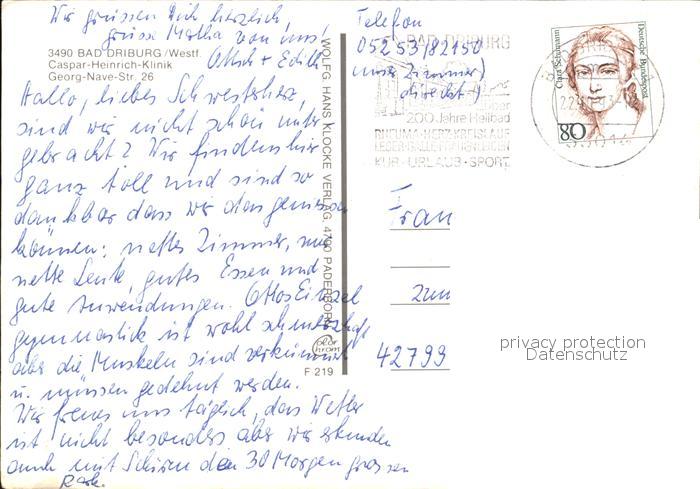 Wir grüssen Dich herzlich,
grüsse Martha von uns!
Ottsch + Edith
3490 BAD DRIBURG/Westf.
Caspar-Heinrich-Klinik
Georg-Nave-Str. 26
Hallo, liebes Schwesterherz,
sind wir nicht schön unter-
gebracht? Wir finden's hier
ganz toll und sind so
dankbar dass wir das geniessen
können: nettes Zimmer, nur
nette Leute, gutes Essen und
gute Anwendungen. Ottos Einzel
gymnastik ist wohl schmerzhaft
aber die Muskeln sind verkümmert
u. müssen gedehnt werden.
Wir freuen uns täglich, das Wetter
ist nicht besonders aber wir erkunden
auch mit Schirm den 30 Morgen grossen
Park.
WOLFG. HANS KLOCKE VERLAG, 4790 PADERBORN
color
chrom
F 219
Telefon
05253/82150
unser Zimmer)
direckt!
BAD DRIBURG
200 Jahre Heilbad
RHEUMA·HERZ·KREISLAUF
LEBER·GALLE·FRAUENLEIDEN
KUR·URLAUB·SPORT
Clara Schumann
Deutsche Bundespost
80
Frau
zum
42799
privacy protection
Datenschutz